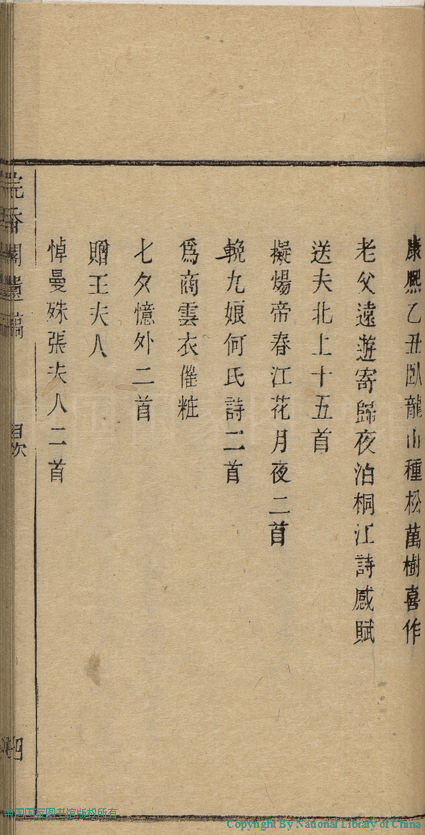 康熙乙丑臥龍山種松萬樹喜作
老父遠遊寄歸夜泊桐江詩感賦
送夫北上十五首
擬煬帝春江花月夜二首
輓九娘何氏詩二首
爲商雲衣催粧
七夕憶外二首
贈王夫人
悼曼殊張夫人二首
目次
四
Copyright By National Library of China